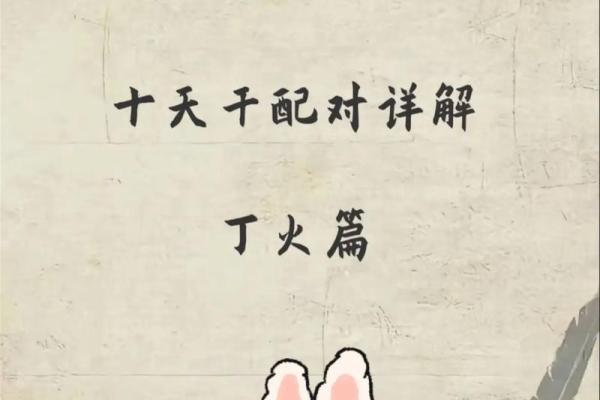 十天干配对详解
丁火篇